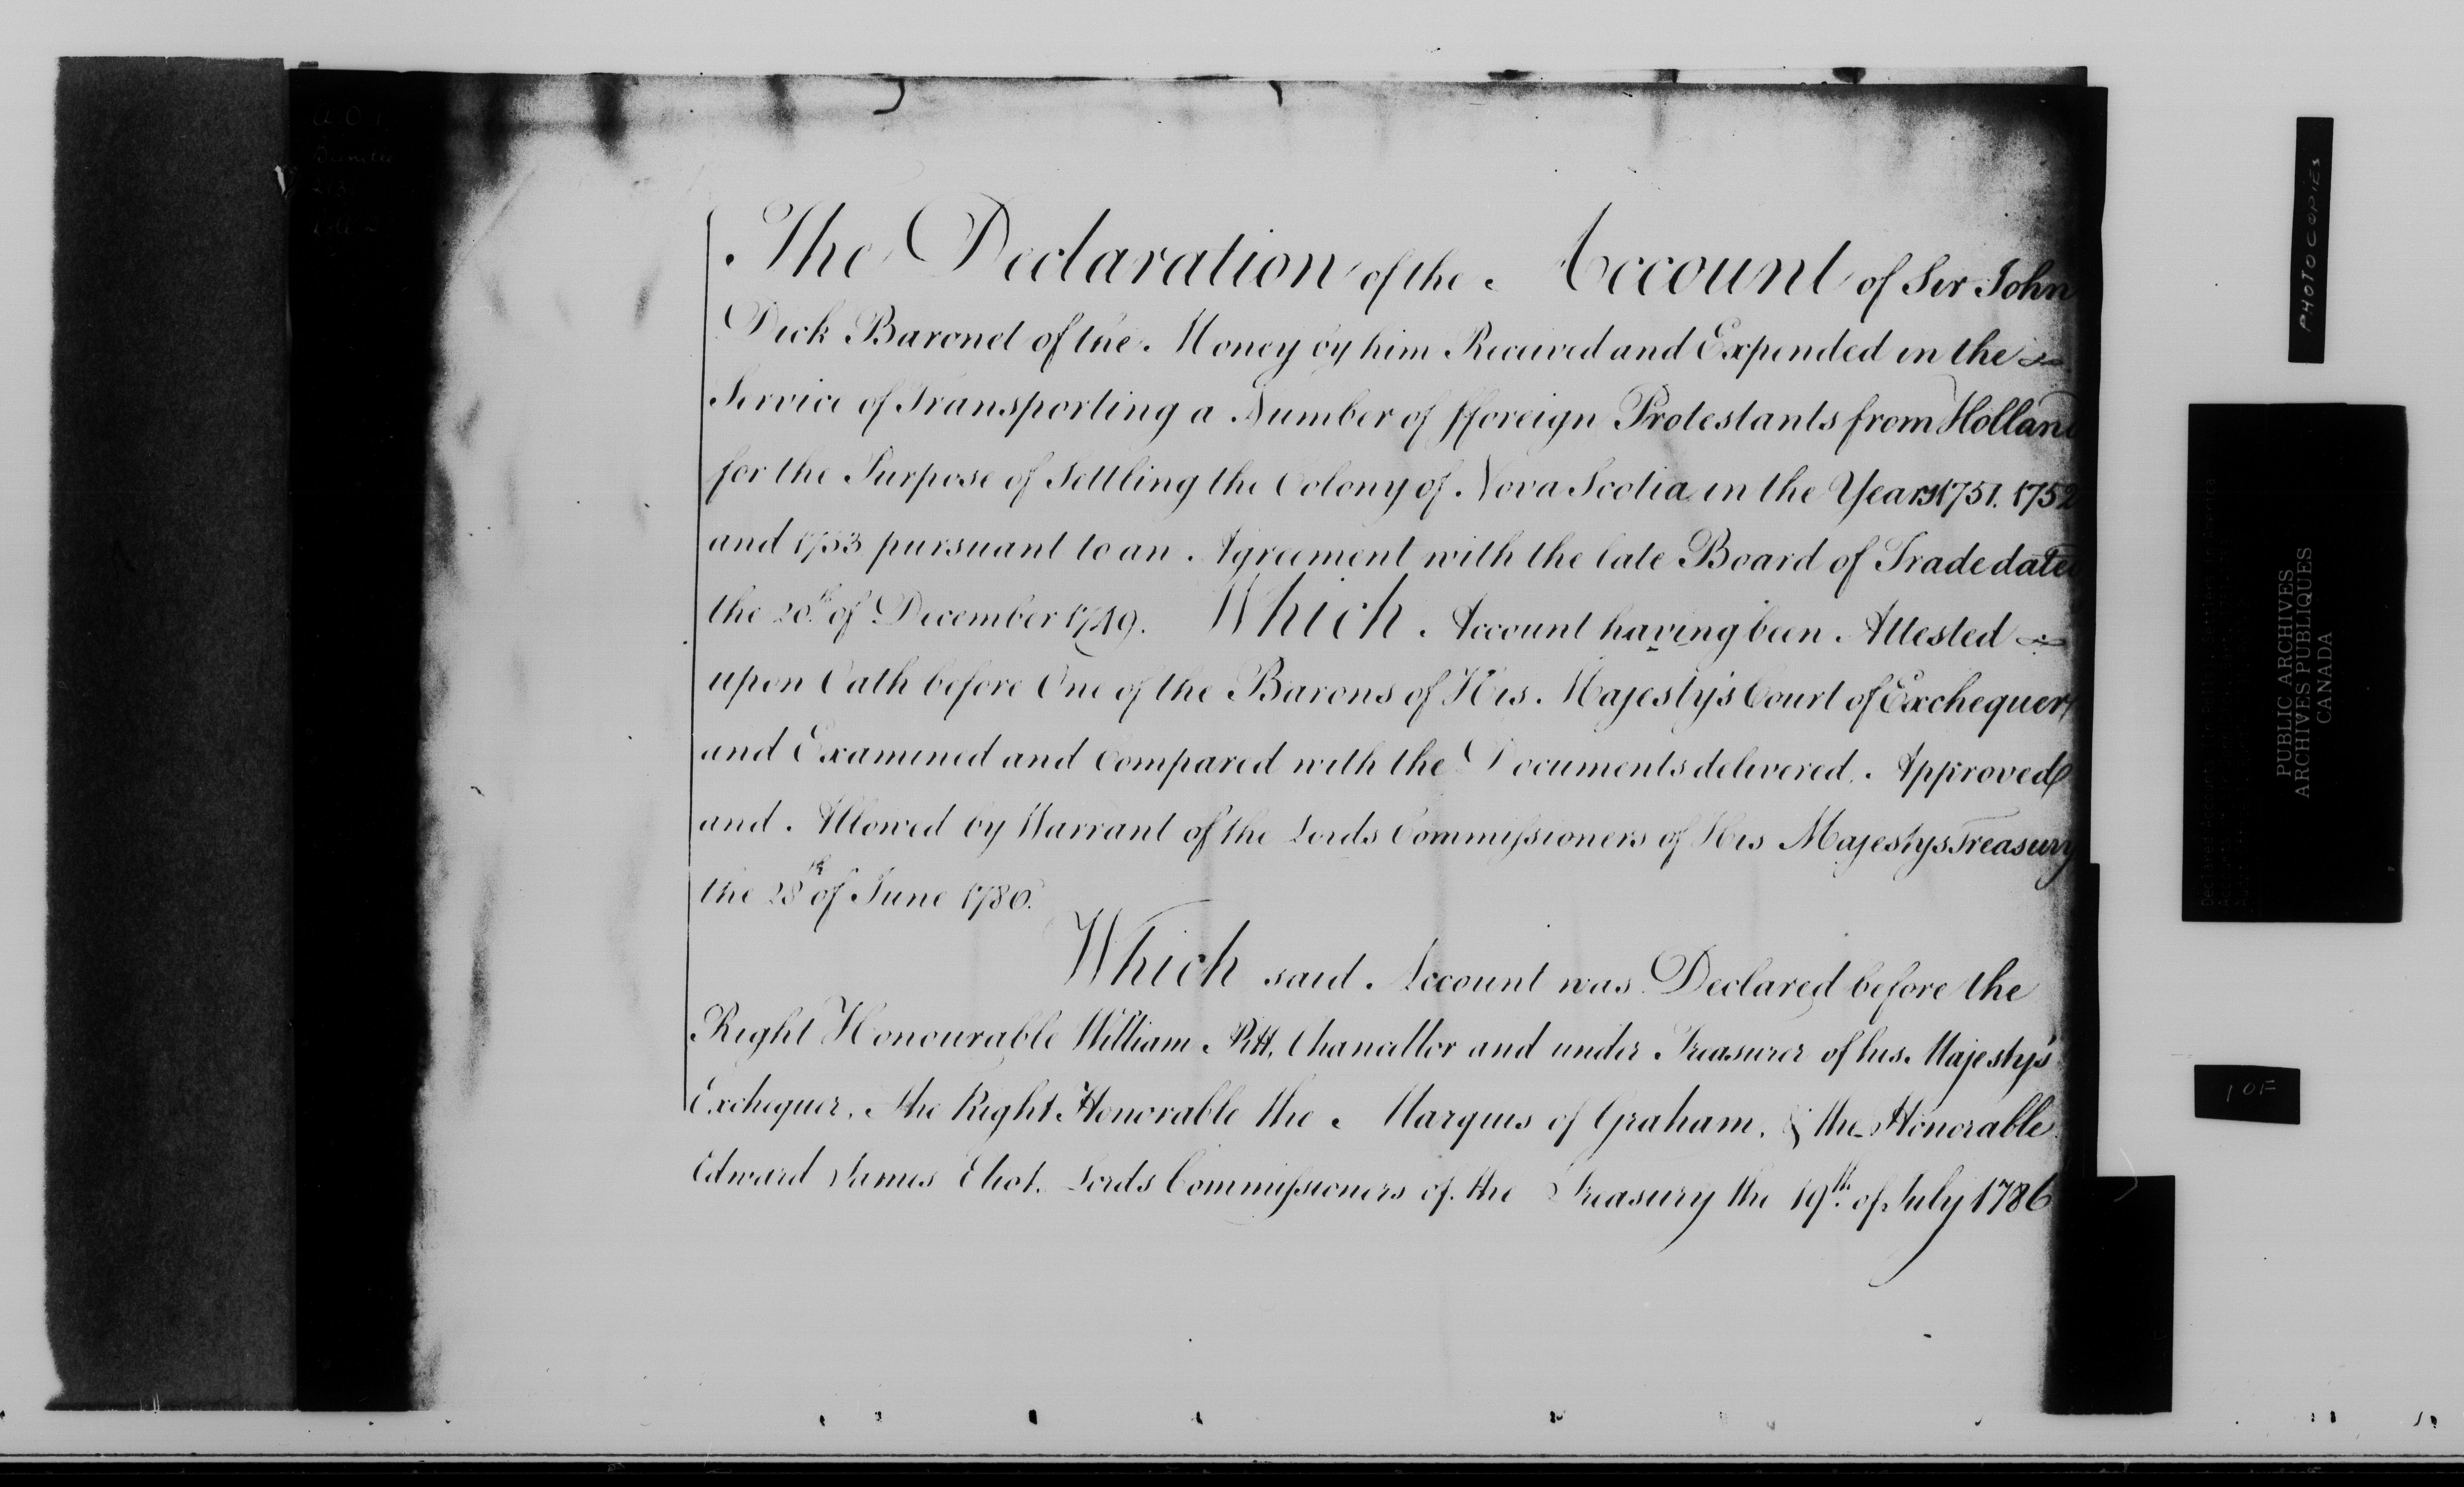 The Declaration of the Account of Sir John
Dick Baronet of the Money by him Received and Expended in the
Service of Transporting a Number of fforeign Protestants from Holland
for the Purpose of Settling the Colony of Nova Scotia in the Years 1751. 1752
and 1753 pursuant to an Agreement with the late Board of Trade dated
the 20th of December 1749. Which Account having been Attested
upon Oath before One of the Barons of His Majesty's Court of Exchequer
and Examined and Compared with the Documents delivered. Approved
and Allowed by Warrant of the Lords Commissioners of His Majestys Treasury
the 28th of June 1786.
Which said Account was Declared before the
Right Honourable William Pitt, Chancellor and under Treasurer of his Majesty's
Exchequer, the Right Honorable the Marquis of Graham, & the Honorable
Edward James Eliot, Lords Commissioners of the Treasury the 19th of July 1786
A.O.1
PHOTOCOPIES
PUBLIC ARCHIVES
ARCHIVES PUBLIQUES
CANADA
1 OF